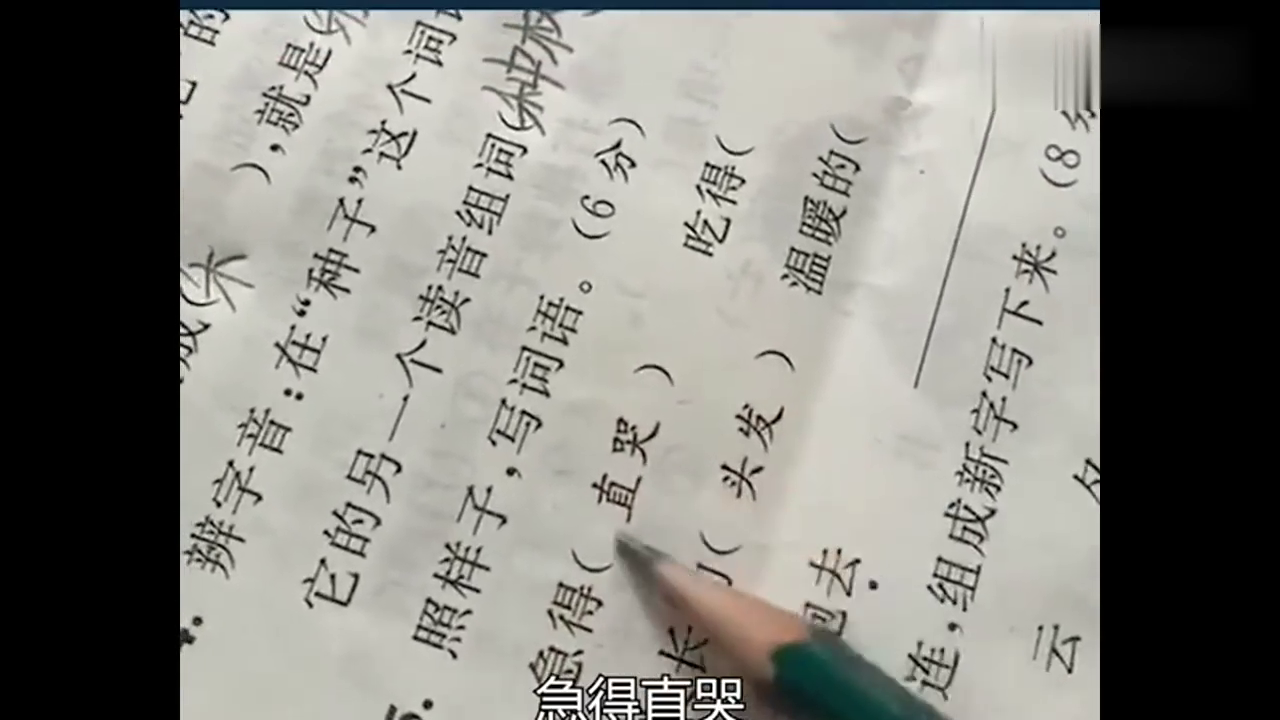 ），就是（
辨字音：在“种子”这个词
它的另一个读音组词（种植
5. 照样子，写词语。（6分）
急得（ 直哭 ） 吃得（
长 （ 头发 ） 温暖的（
去
连，组成新字写下来。（8分
云
急得直哭